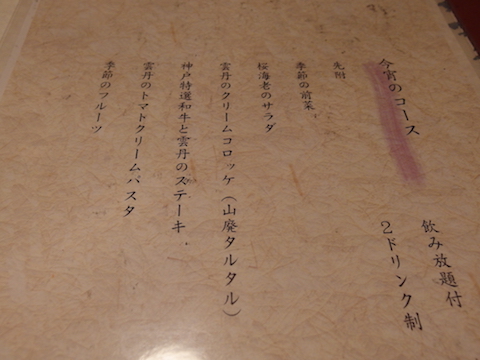 飲み放題付
2ドリンク制
今宵のコース
先附
季節の前菜
桜海老のサラダ
雲丹のクリームコロッケ(山廃タルタル)
神戸特選和牛と雲丹のステーキ
雲丹のトマトクリームパスタ
季節のフルーツ